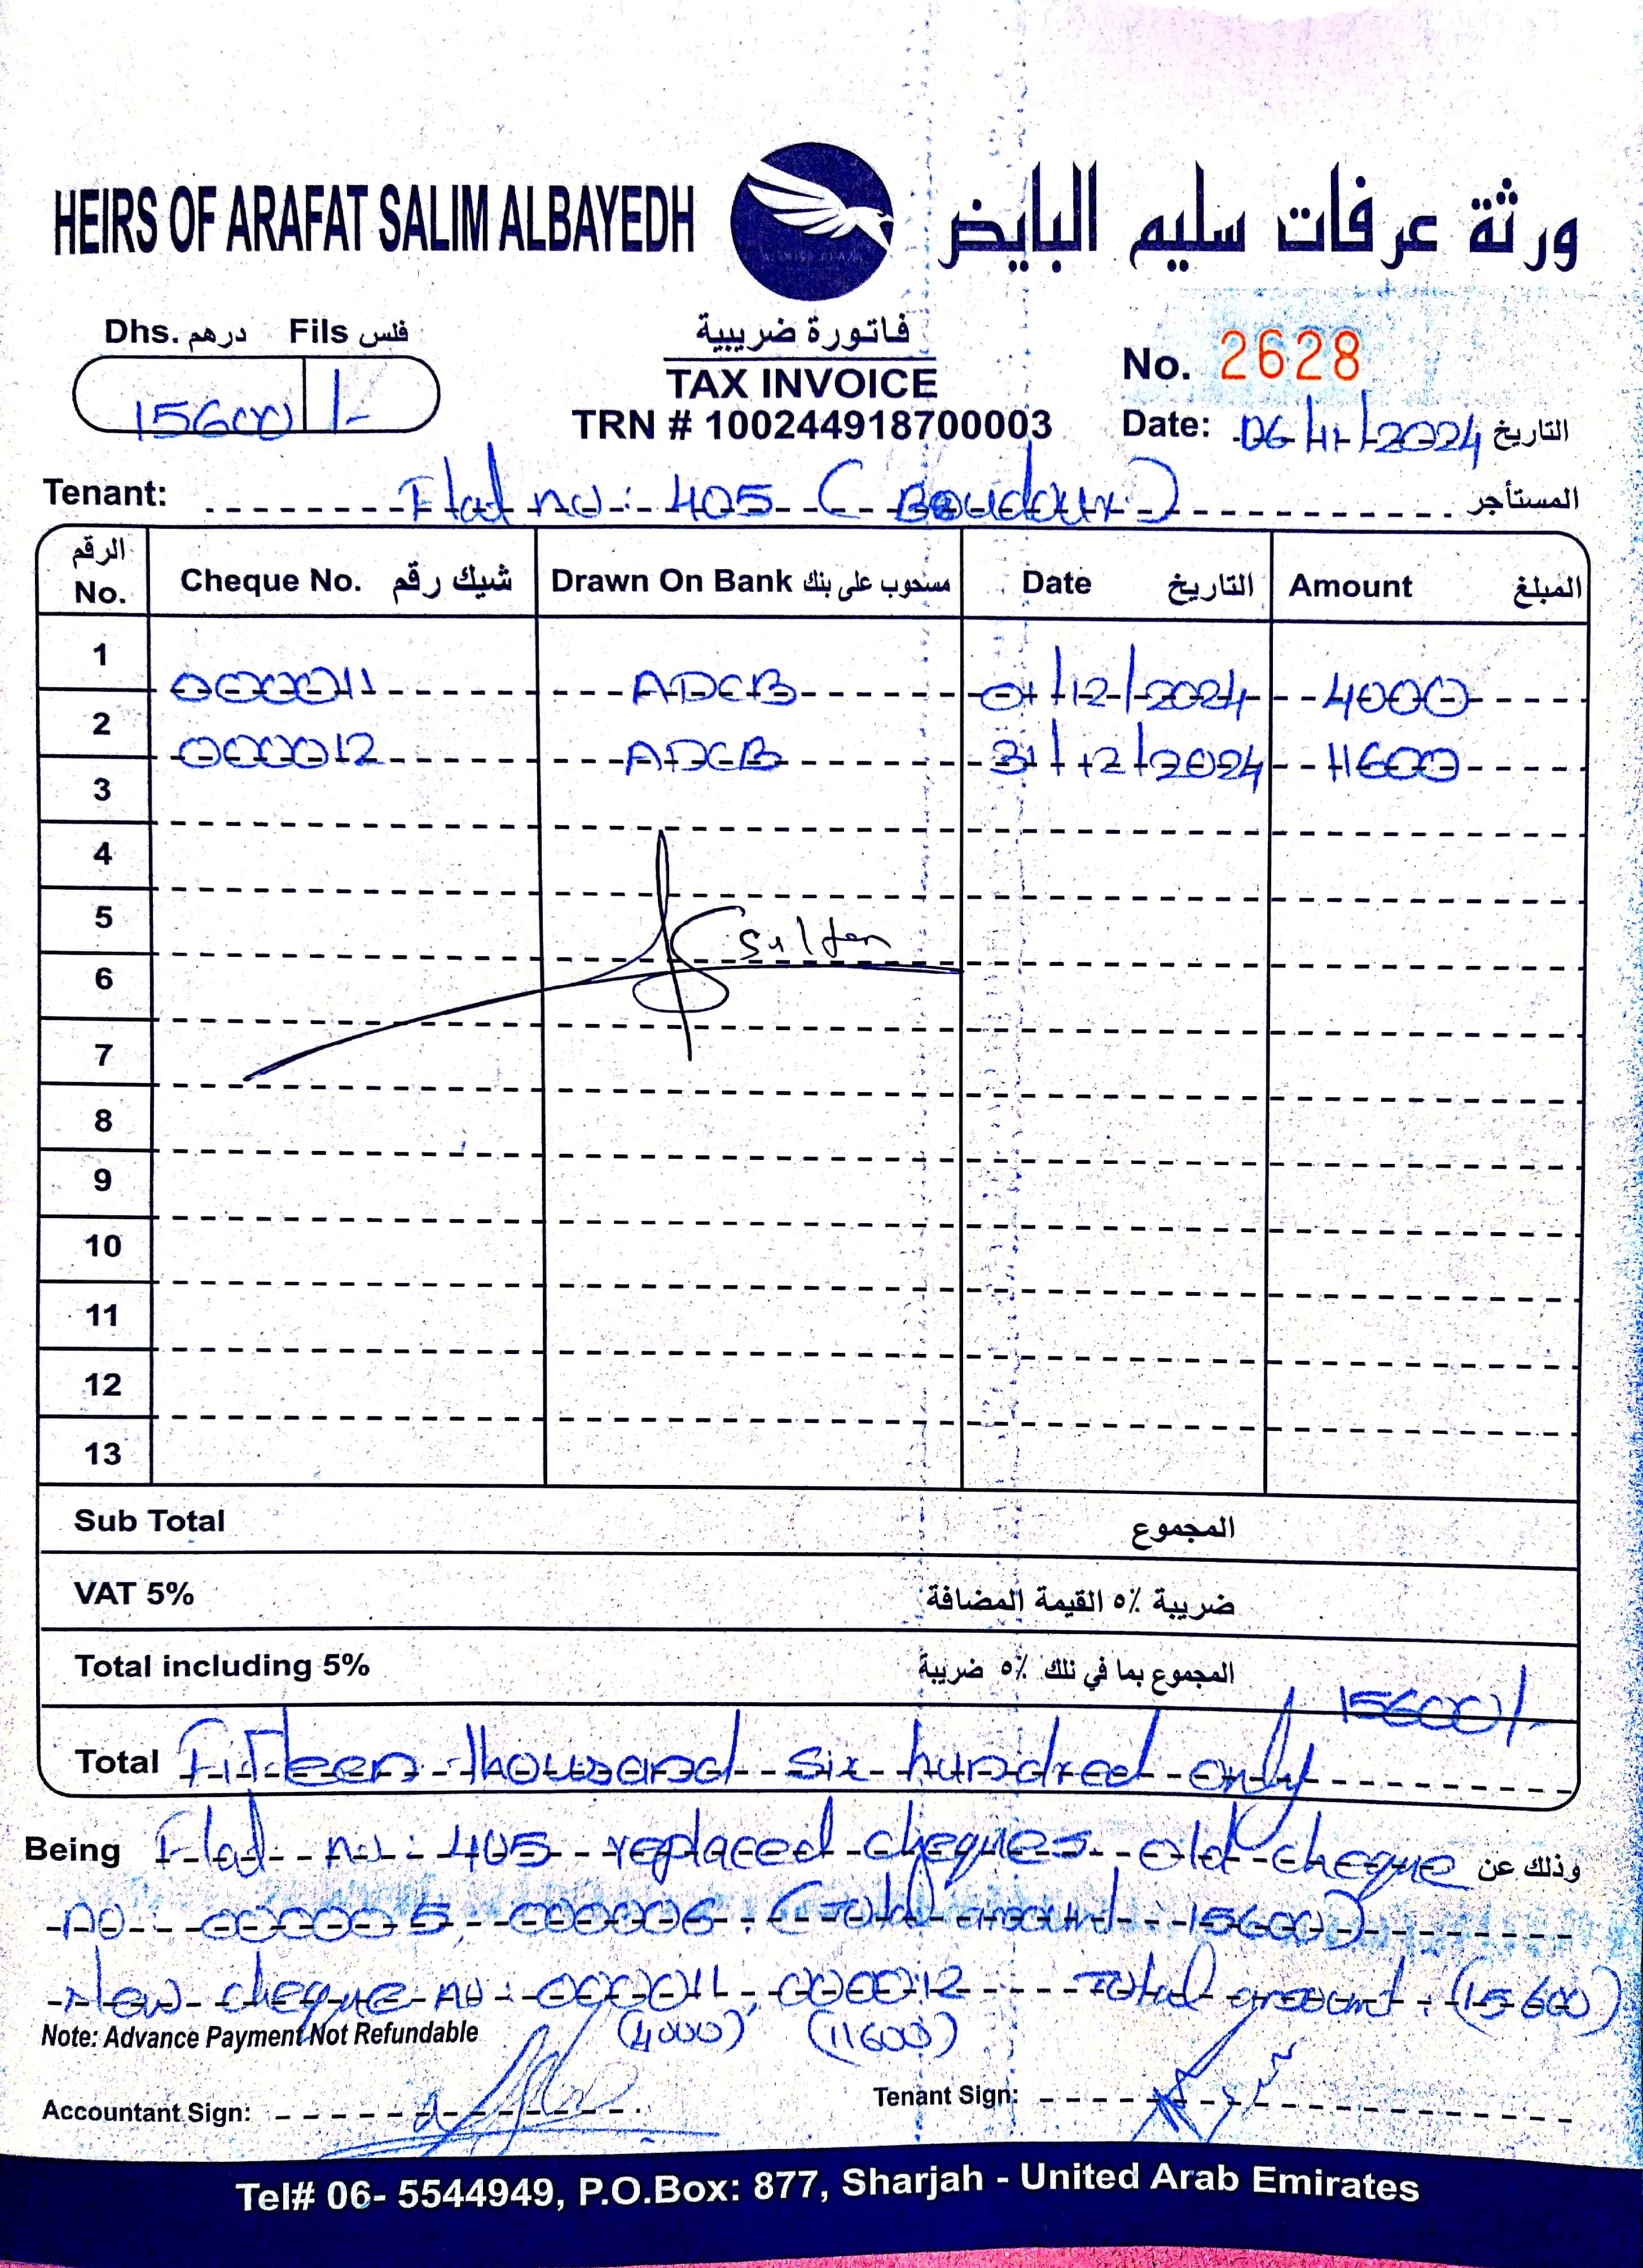 HEIRS OF ARAFAT SALIM ALBAYEDH
ورثة عرفات سليم البايض
Dhs. درهم Fils فلس
15600 /-
فاتورة ضريبية
TAX INVOICE
TRN # 100244918700003
No. 2628
Date: 06/11/2024 التاريخ
Tenant: Flat no: 405 ( المستأجر
الرقم No. Cheque No. شيك رقم Drawn On Bank مسحوب على بنك Date التاريخ Amount المبلغ
1 000011 ADCB 01/12/2024 4000
2 000012 ADCB 31/12/2024 11600
3
4
5 Sultan
6
7
8
9
10
11
12
13
Sub Total المجموع
VAT 5% ضريبة ٥٪ القيمة المضافة
Total including 5% المجموع بما في ذلك ٥٪ ضريبة 15600/-
Total Fifteen thousand six hundred only
Being Flat no: 405 replaced cheques old cheque وذلك عن
no: 000005, 000006. (Total amount: 15600)
New cheque no: 000011, 000012 Total amount: (15600)
(4000) (11600)
Note: Advance Payment Not Refundable
Accountant Sign: Tenant Sign:
Tel# 06- 5544949, P.O.Box: 877, Sharjah - United Arab Emirates